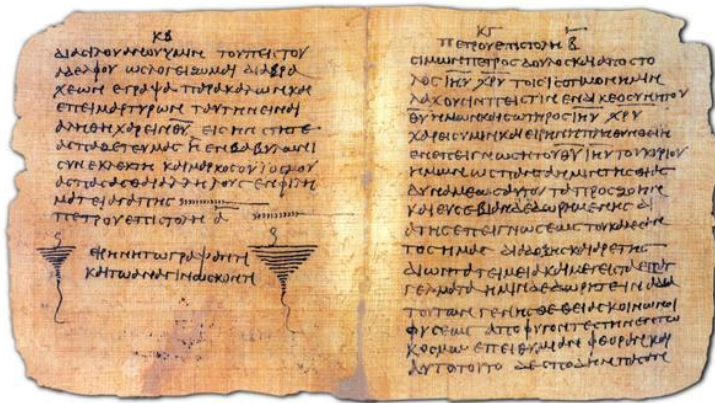 ΚΒ
διασιλουανουυμιν τουπιστου
αδελφου ωσλογειζομαι διαβρα
χεων εγραψα παρακαλωνκαι
επειμαρτυρων ταυτηνειναι
αληθη χαρειν θ̅υ̅ εις ην στητε
ασπαζετευμας η ενβαβυλωνι
συνεκλεκτη καιμαρκοσουιοσμου
ασπασασθαι αλληλους ενφιλη
ματει αγαπης
πετρουεπιστολη α̅
ειρηνητωγραψαντι
καιτωαναγινωσκοντι
ΚΓ
πετρουεπιστολη β̅
σιμωνπετροσδουλοσκαιαποστο
λος ι̅η̅υ̅ χ̅ρ̅υ̅ τοις ισοτιμονημιν
λαχουσιν πιστιν εν δικεοσυνη του
θ̅υ̅ ημωνκαισωτηρος ι̅η̅υ̅ χ̅ρ̅υ̅
χαρεισυμινκαιειρηνη πληθυνθειη
ενεπειγνωσητου θ̅υ̅ ι̅η̅υ̅ τουκυριου
ημων ωσπανταημιν τησθειας
δυναμεωσαυτου ταπροσζωην
καιευσεβιαν δεδωρημενης δι
ατης επειγνωσεως τουκαλεσαν
τος ημας διαδοξησκαιαρετης
διωντατειμεια καιμεγιστα επαγ
γελματα ημιν δεδωρητε ινα δια
τουτων γενησθε θειας κοινωνοι
φυσεως αποφυγοντες την εν τω
κοσμω επειθυμιαν φθορας και
αυτο τουτο δε σπουδην πασαν